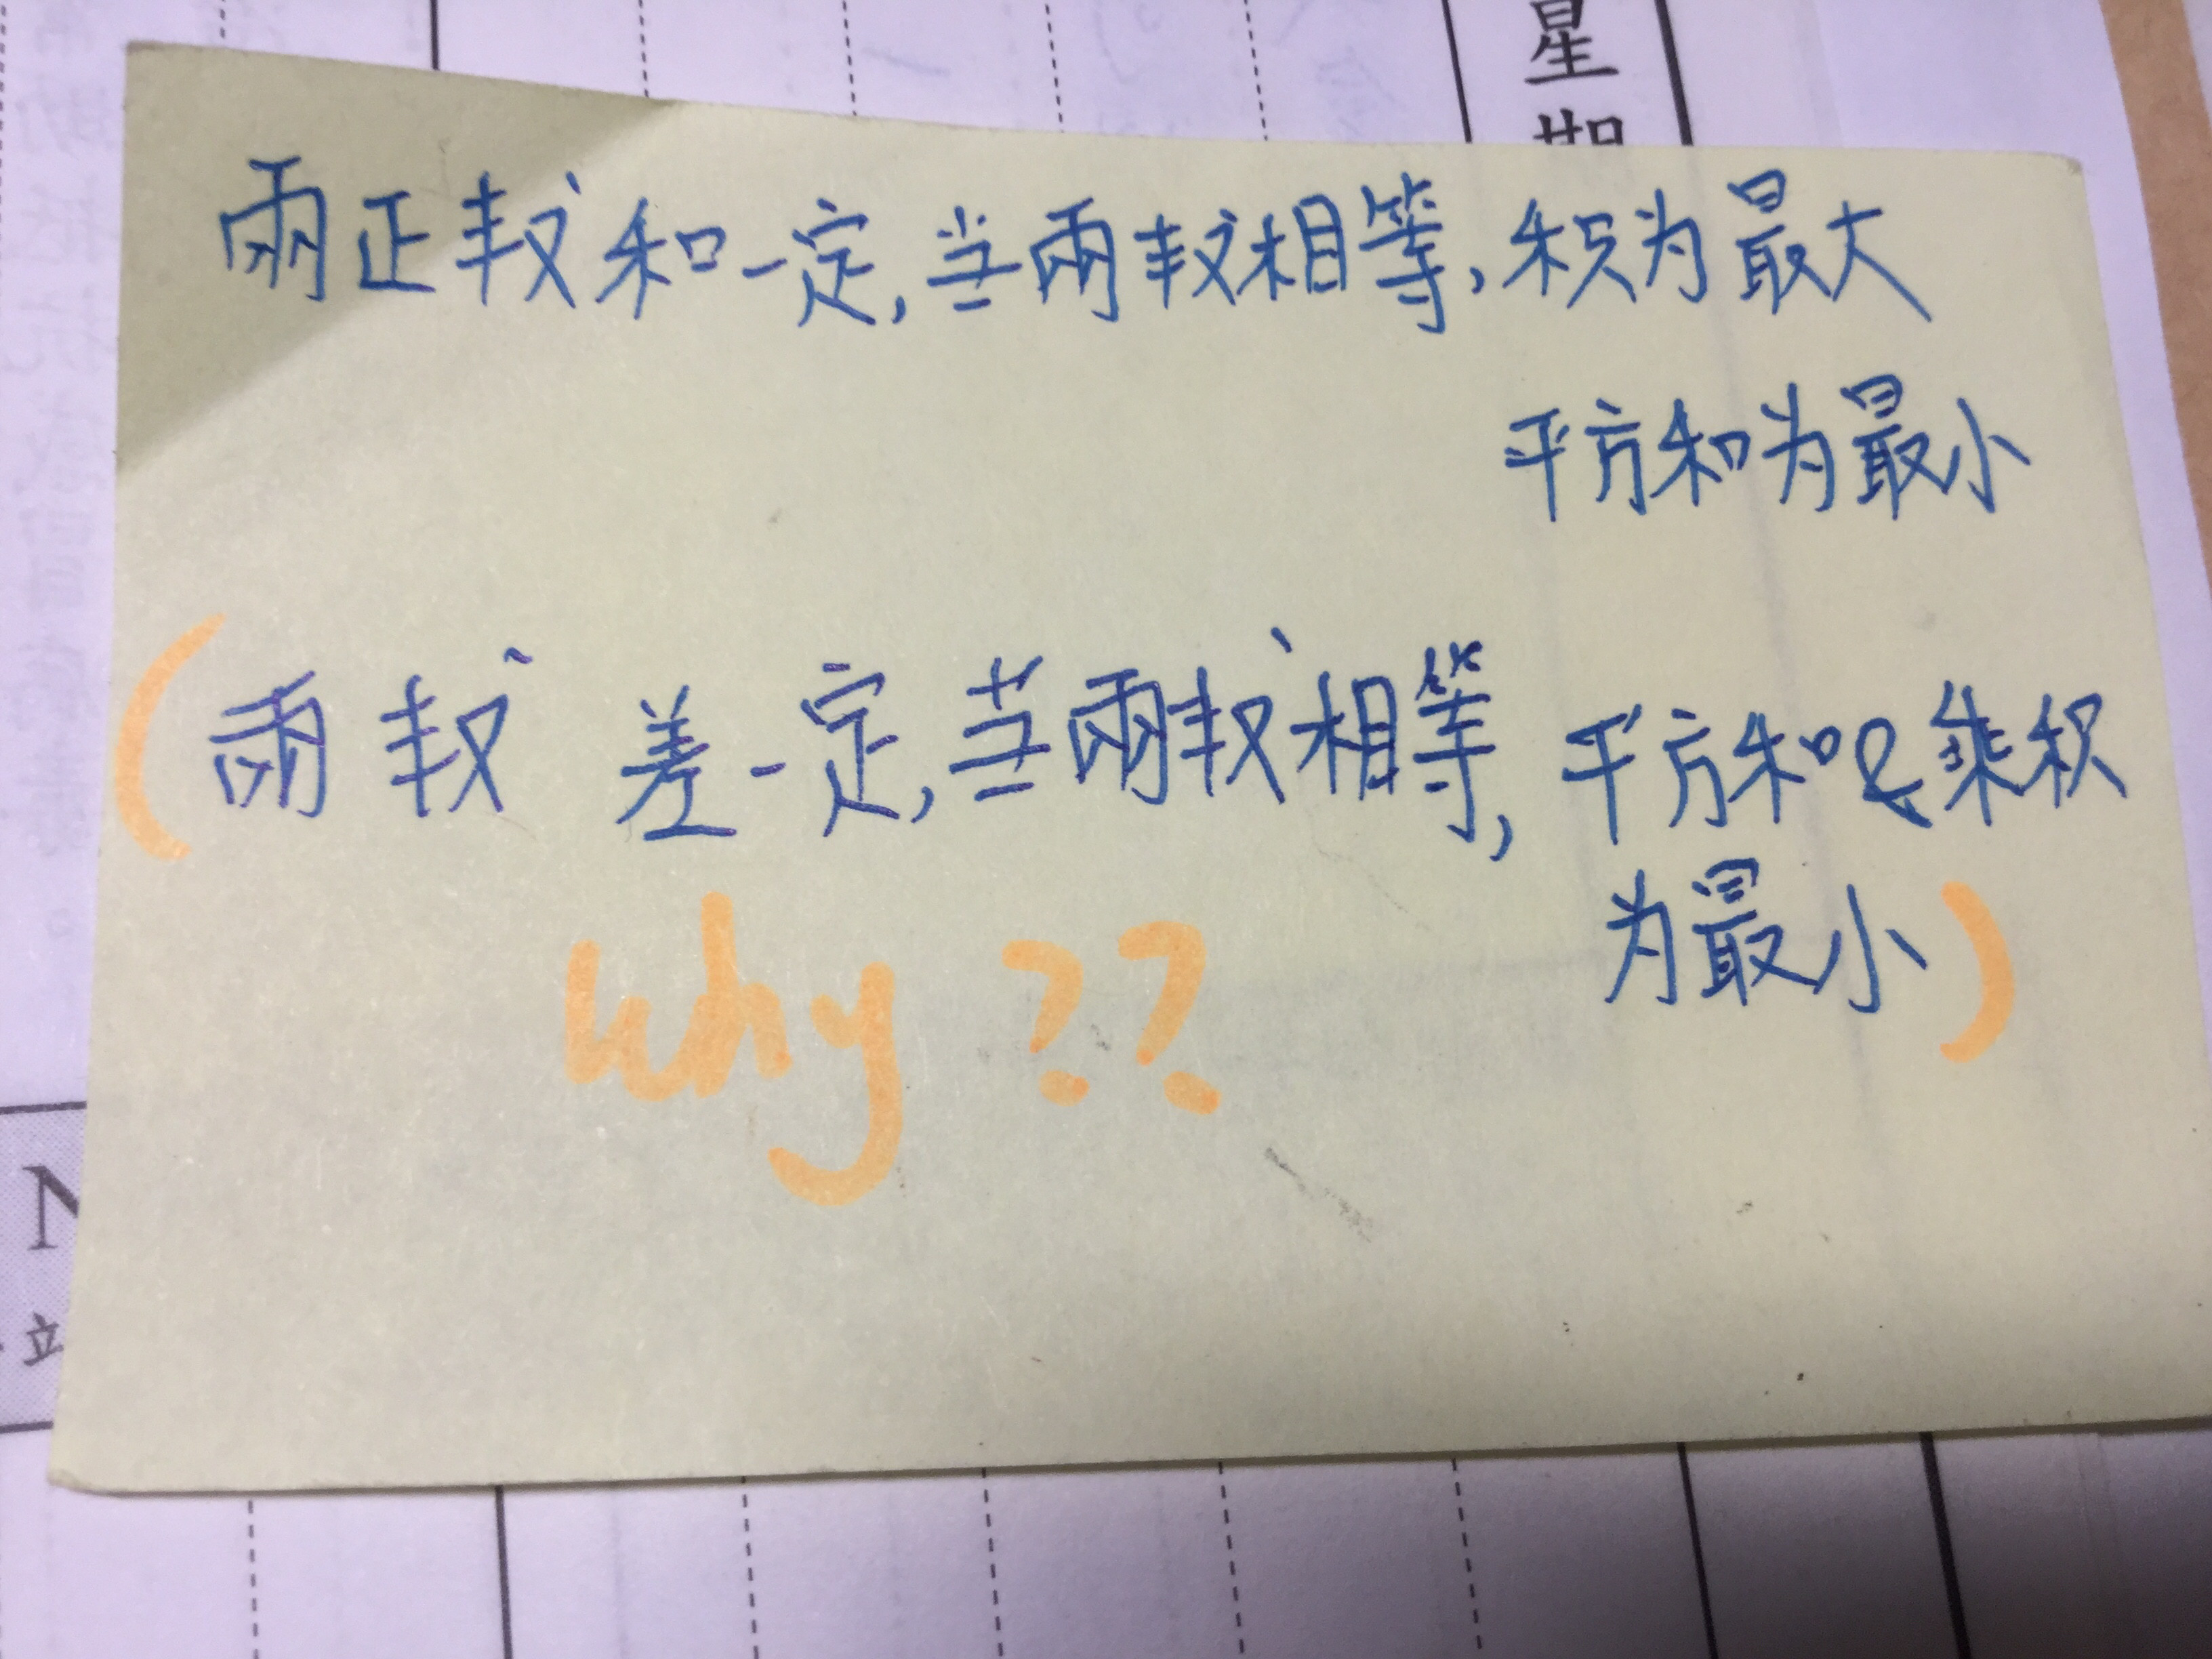 星期
兩正数和一定,当兩数相等,积为最大
平方和为最小
(兩数 差一定,当兩数相等,平方和&乘积
为最小)
why ??
N
立